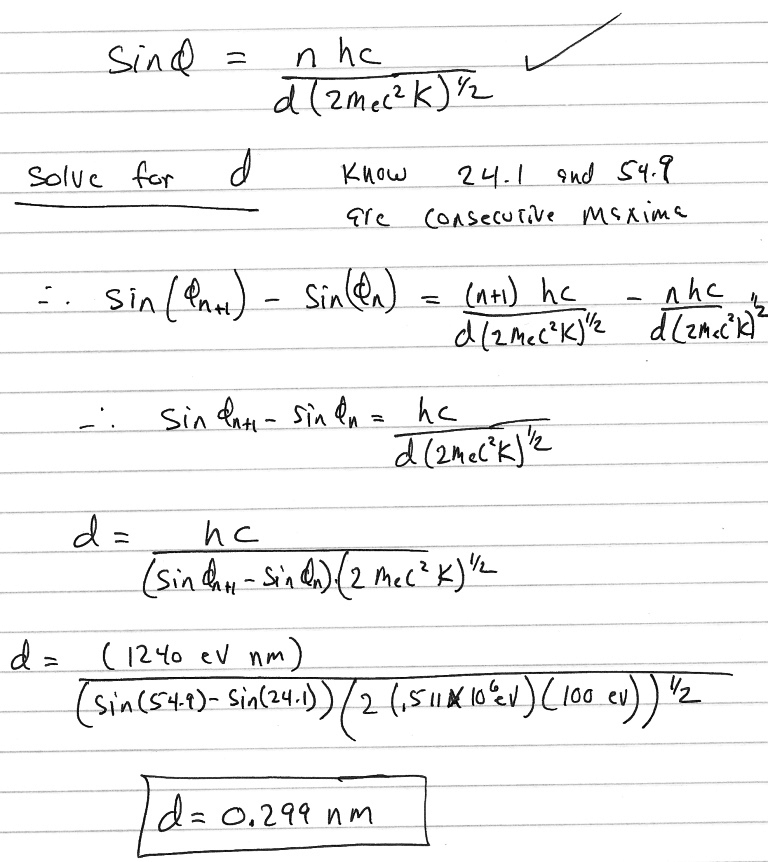 sinφ = n hc / d(2mec²K)^1/2 ✓
solve for d Know 24.1 and 54.9
are consecutive maxima
∴ sin(φn+1) - sin(φn) = (n+1) hc / d(2mec²K)^1/2 - nhc / d(2mec²K)^1/2
∴ sin φn+1 - sin φn = hc / d(2mec²K)^1/2
d = hc / (sin φn+1 - sin φn)·(2 mec² K)^1/2
d = (1240 eV nm) / (sin(54.9) - sin(24.1))(2 (.511 x 10^6 eV)(100 eV))^1/2
d = 0.299 nm